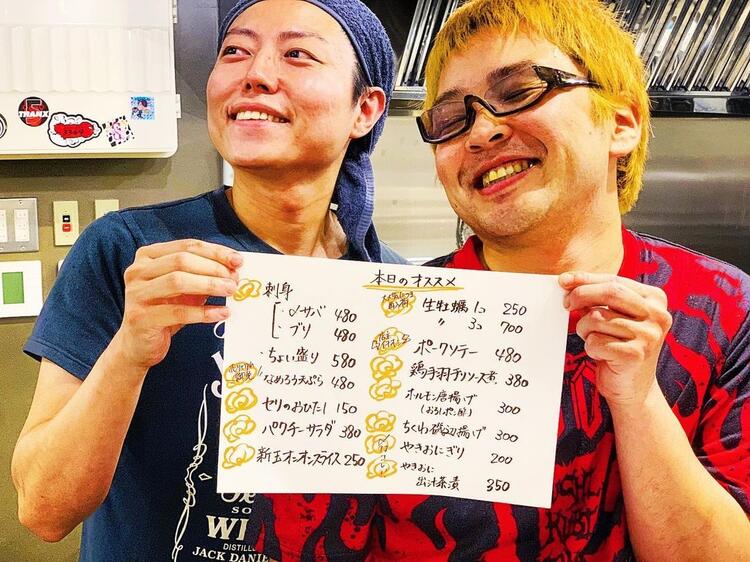 本日のオススメ
刺身
・〆サバ 480
・ブリ 480
・ちょい盛り 580
なめろう天ぷら 480
セリのおひたし 150
パクチーサラダ 380
新玉オニオンスライス 250
生牡蠣 1コ 250
〃 3コ 700
ポークソテー 480
鶏手羽チリソース煮 380
ホルモン唐揚げ 300
(おろしポン酢)
ちくわ磯辺揚げ 300
やきおにぎり 200
やきおに
出汁茶漬 350
TRANX
JACK DANIE